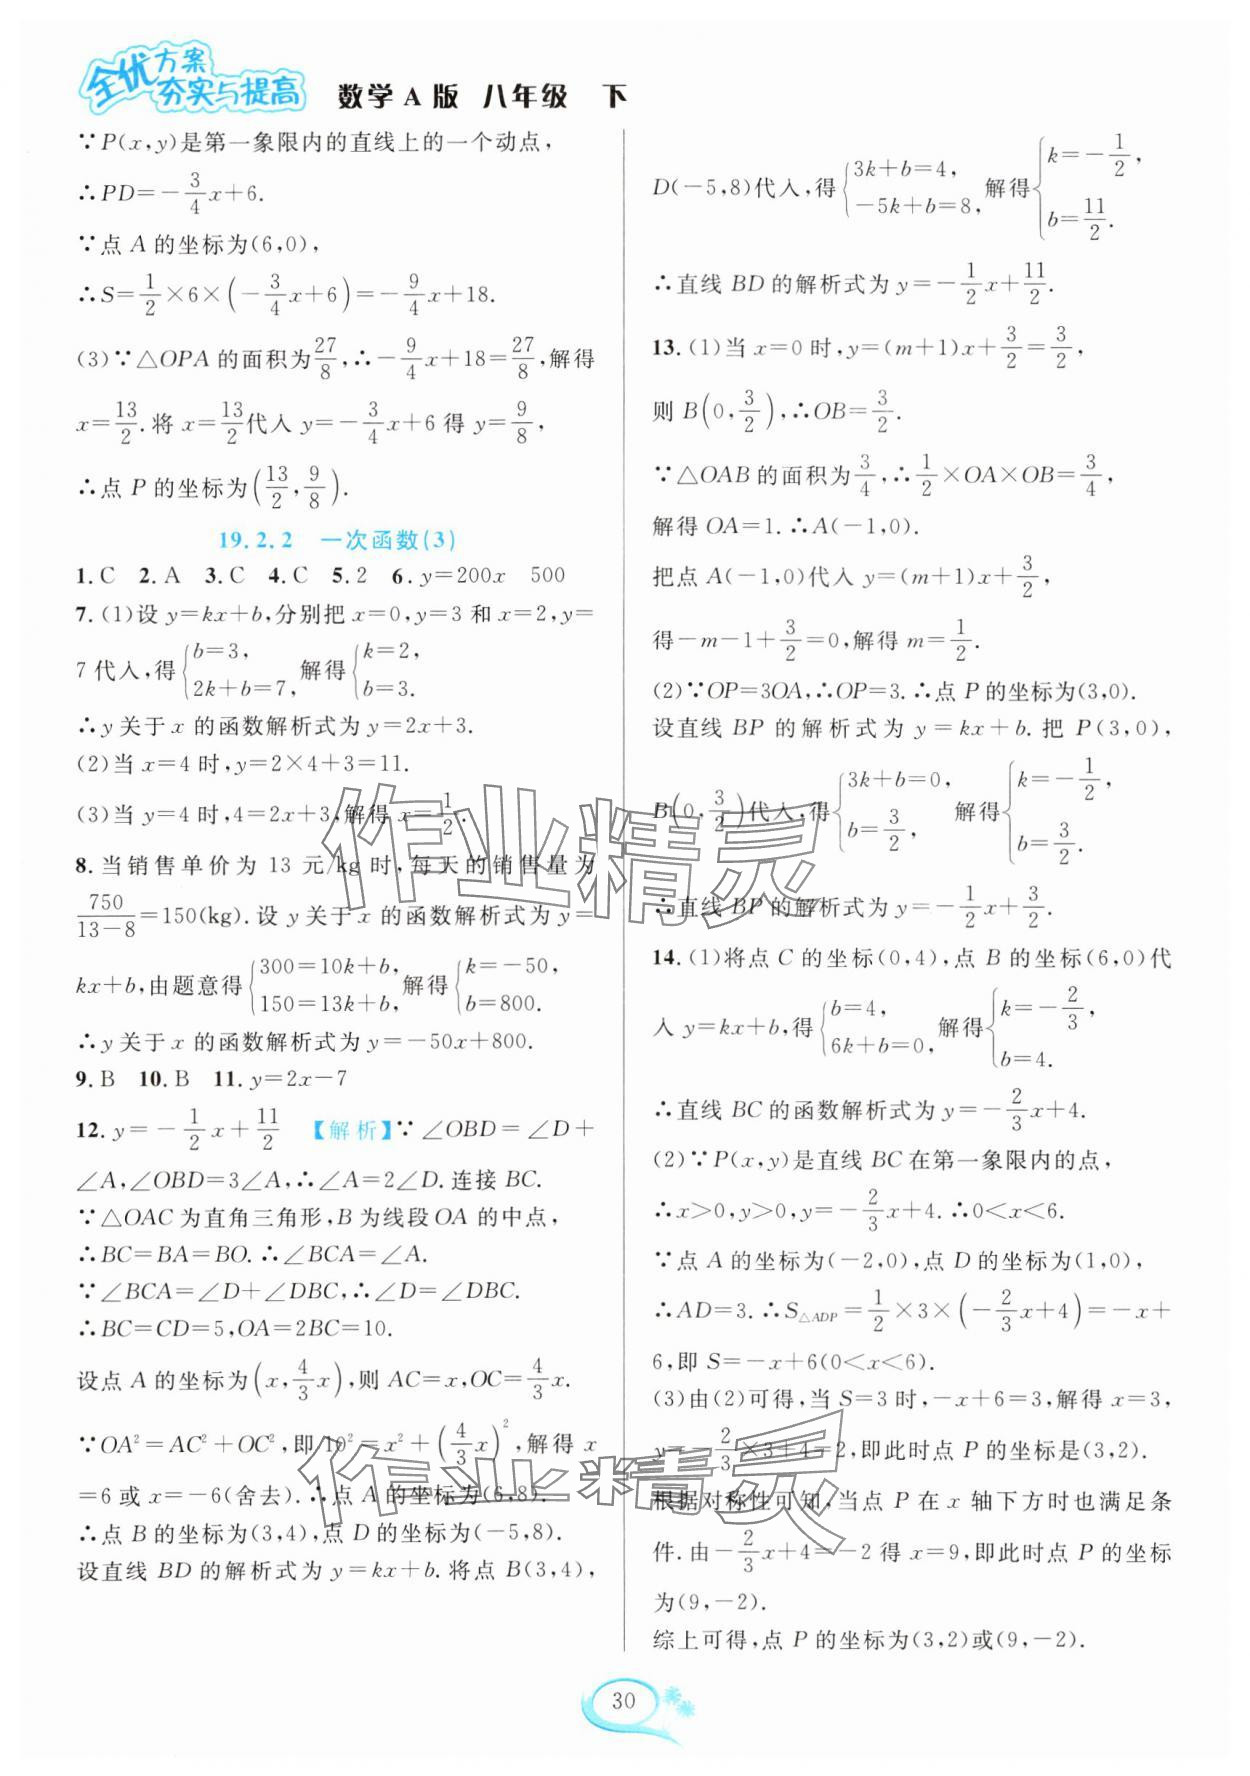 全优方案
夯实与提高 数学A版 八年级 下
∵P(x,y)是第一象限内的直线上的一个动点,
∴PD=-3/4x+6.
∵点 A 的坐标为(6,0),
∴S=1/2×6×(-3/4x+6)=-9/4x+18.
(3)∵△OPA 的面积为27/8,∴-9/4x+18=27/8,解得
x=13/2.将 x=13/2代入 y=-3/4x+6 得 y=9/8,
∴点 P 的坐标为(13/2,9/8).
19.2.2 一次函数(3)
1.C 2.A 3.C 4.C 5.2 6.y=200x 500
7.(1)设 y=kx+b,分别把 x=0,y=3 和 x=2,y=
7 代入,得{b=3, 2k+b=7, 解得{k=2, b=3.
∴y 关于 x 的函数解析式为 y=2x+3.
(2)当 x=4 时,y=2×4+3=11.
(3)当 y=4 时,4=2x+3,解得 x=1/2.
8.当销售单价为 13 元/kg 时,每天的销售量为
750/(13-8)=150(kg).设 y 关于 x 的函数解析式为 y=
kx+b,由题意得{300=10k+b, 150=13k+b, 解得{k=-50, b=800.
∴y 关于 x 的函数解析式为 y=-50x+800.
9.B 10.B 11.y=2x-7
12.y=-1/2x+11/2 【解析】∵∠OBD=∠D+
∠A,∠OBD=3∠A,∴∠A=2∠D.连接 BC.
∵△OAC 为直角三角形,B 为线段 OA 的中点,
∴BC=BA=BO.∴∠BCA=∠A.
∵∠BCA=∠D+∠DBC,∴∠D=∠DBC.
∴BC=CD=5,OA=2BC=10.
设点 A 的坐标为(x,4/3x),则 AC=x,OC=4/3x.
∵OA²=AC²+OC²,即 10²=x²+(4/3x)²,解得 x
=6 或 x=-6(舍去).∴点 A 的坐标为(6,8).
∴点 B 的坐标为(3,4),点 D 的坐标为(-5,8).
设直线 BD 的解析式为 y=kx+b.将点 B(3,4),
D(-5,8)代入,得{3k+b=4, -5k+b=8, 解得{k=-1/2, b=11/2.
∴直线 BD 的解析式为 y=-1/2x+11/2.
13.(1)当 x=0 时,y=(m+1)x+3/2=3/2,
则 B(0,3/2),∴OB=3/2.
∵△OAB 的面积为3/4,∴1/2×OA×OB=3/4,
解得 OA=1.∴A(-1,0).
把点 A(-1,0)代入 y=(m+1)x+3/2,
得-m-1+3/2=0,解得 m=1/2.
(2)∵OP=3OA,∴OP=3.∴点 P 的坐标为(3,0).
设直线 BP 的解析式为 y=kx+b.把 P(3,0),
B(0,3/2)代入,得{3k+b=0, b=3/2, 解得{k=-1/2, b=3/2.
∴直线 BP 的解析式为 y=-1/2x+3/2.
14.(1)将点 C 的坐标(0,4),点 B 的坐标(6,0)代
入 y=kx+b,得{b=4, 6k+b=0, 解得{k=-2/3, b=4.
∴直线 BC 的函数解析式为 y=-2/3x+4.
(2)∵P(x,y)是直线 BC 在第一象限内的点,
∴x>0,y>0,y=-2/3x+4.∴0<x<6.
∵点 A 的坐标为(-2,0),点 D 的坐标为(1,0),
∴AD=3.∴S△ADP=1/2×3×(-2/3x+4)=-x+
6,即 S=-x+6(0<x<6).
(3)由(2)可得,当 S=3 时,-x+6=3,解得 x=3,
y=-2/3×3+4=2,即此时点 P 的坐标是(3,2).
根据对称性可知,当点 P 在 x 轴下方时也满足条
件.由-2/3x+4=-2 得 x=9,即此时点 P 的坐标
为(9,-2).
综上可得,点 P 的坐标为(3,2)或(9,-2).
作业精灵
作业精灵
30